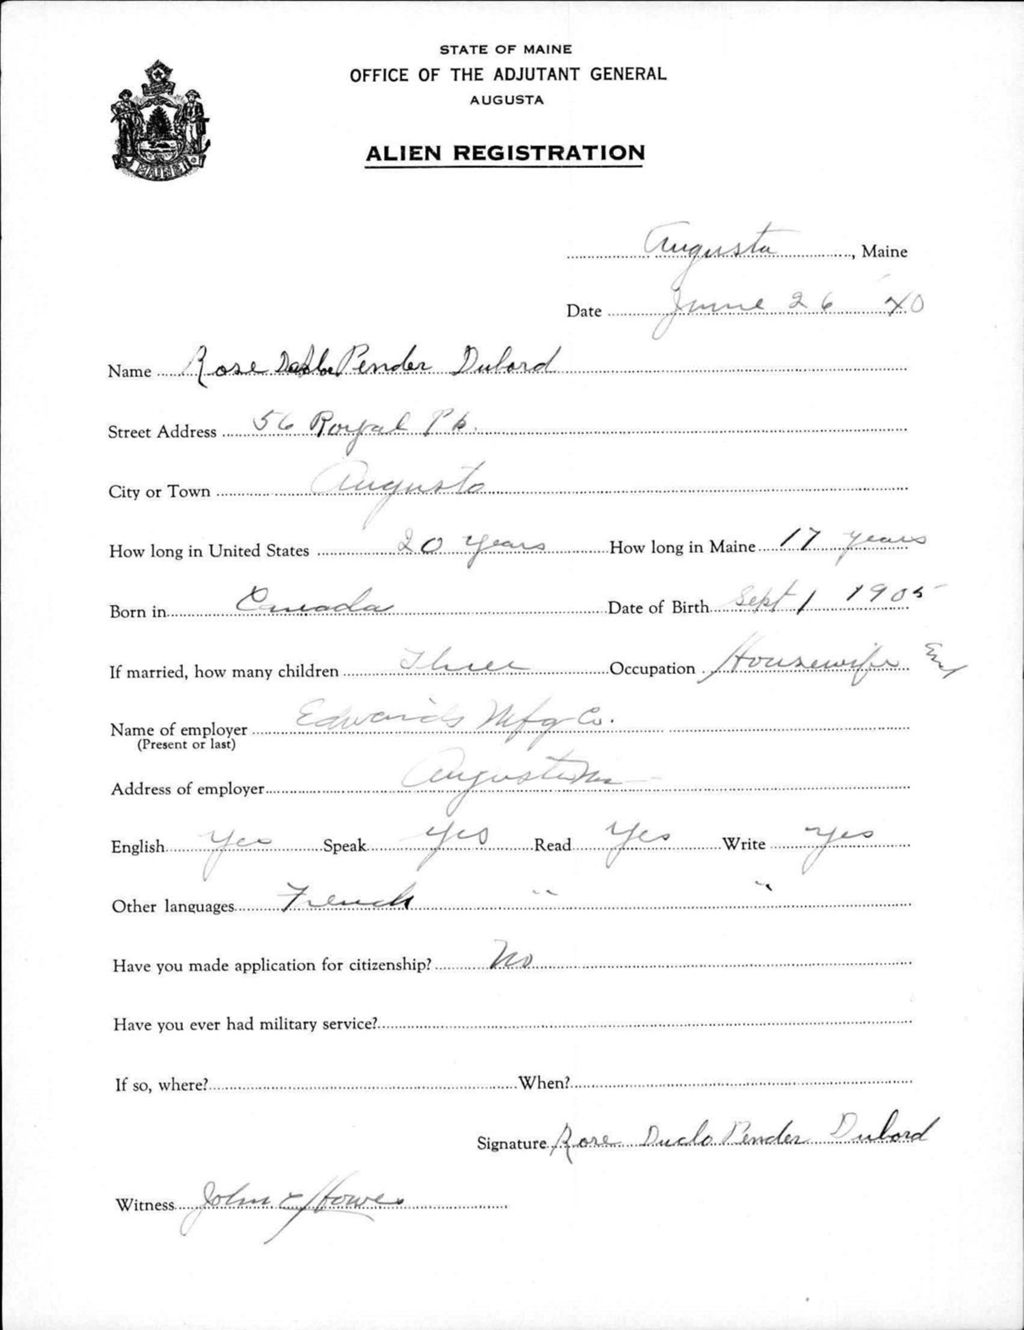 STATE OF MAINE
OFFICE OF THE ADJUTANT GENERAL
AUGUSTA
ALIEN REGISTRATION
MAINE
Augusta, Maine
Date June 26 40
Name Rose Pender Dubord
Street Address 56 Royal
City or Town Augusta
How long in United States 20 years How long in Maine 17 years
Born in Canada Date of Birth Sept 1 1905
If married, how many children Three Occupation Housewife
Name of employer Edwards Mfg Co.
(Present or last)
Address of employer Augusta Me
English Yes Speak yes Read Yes Write yes
Other languages French " "
Have you made application for citizenship? No
Have you ever had military service?
If so, where? When?
Signature Rose Duclo Pender Dubord
Witness John E Howe